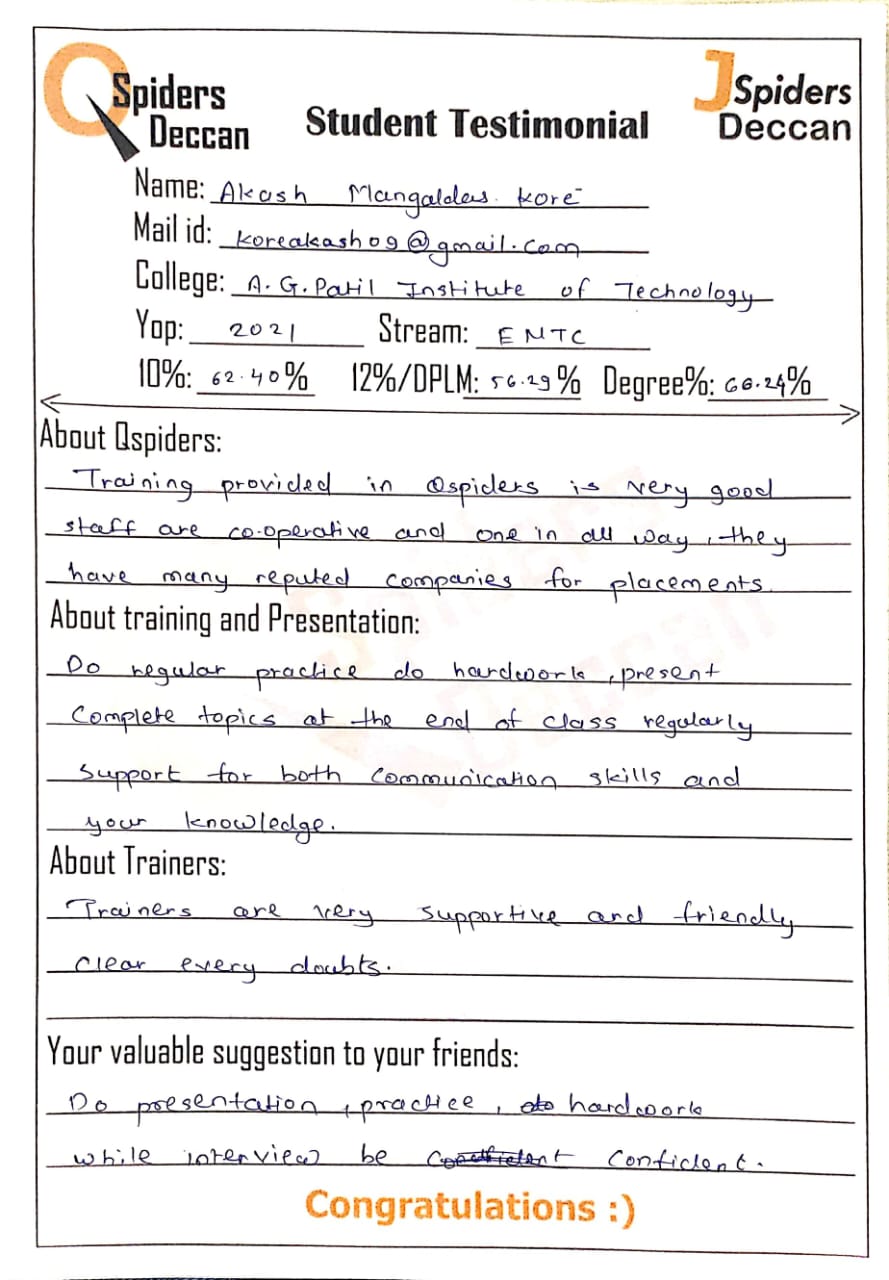 QSpiders Deccan
Student Testimonial
JSpiders Deccan
Name: Akash Mangaldas. Kore
Mail id: koreakash09@gmail.com
College: A.G.Patil Institute of Technology
Yop: 2021 Stream: ENTC
10%: 62.40% 12%/DPLM: 56.29% Degree%: 66.24%
About Qspiders:
Training provided in Qspiders is very good
staff are co-operative and one in all way, they
have many reputed companies for placements.
About training and Presentation:
Do regular practice do hardwork, present
Complete topics at the end of class regularly
support for both communication skills and
your knowledge.
About Trainers:
Trainers are very supportive and friendly
clear every doubts.
Your valuable suggestion to your friends:
Do presentation, practice, hardwork
while interview be confident.
Congratulations :)